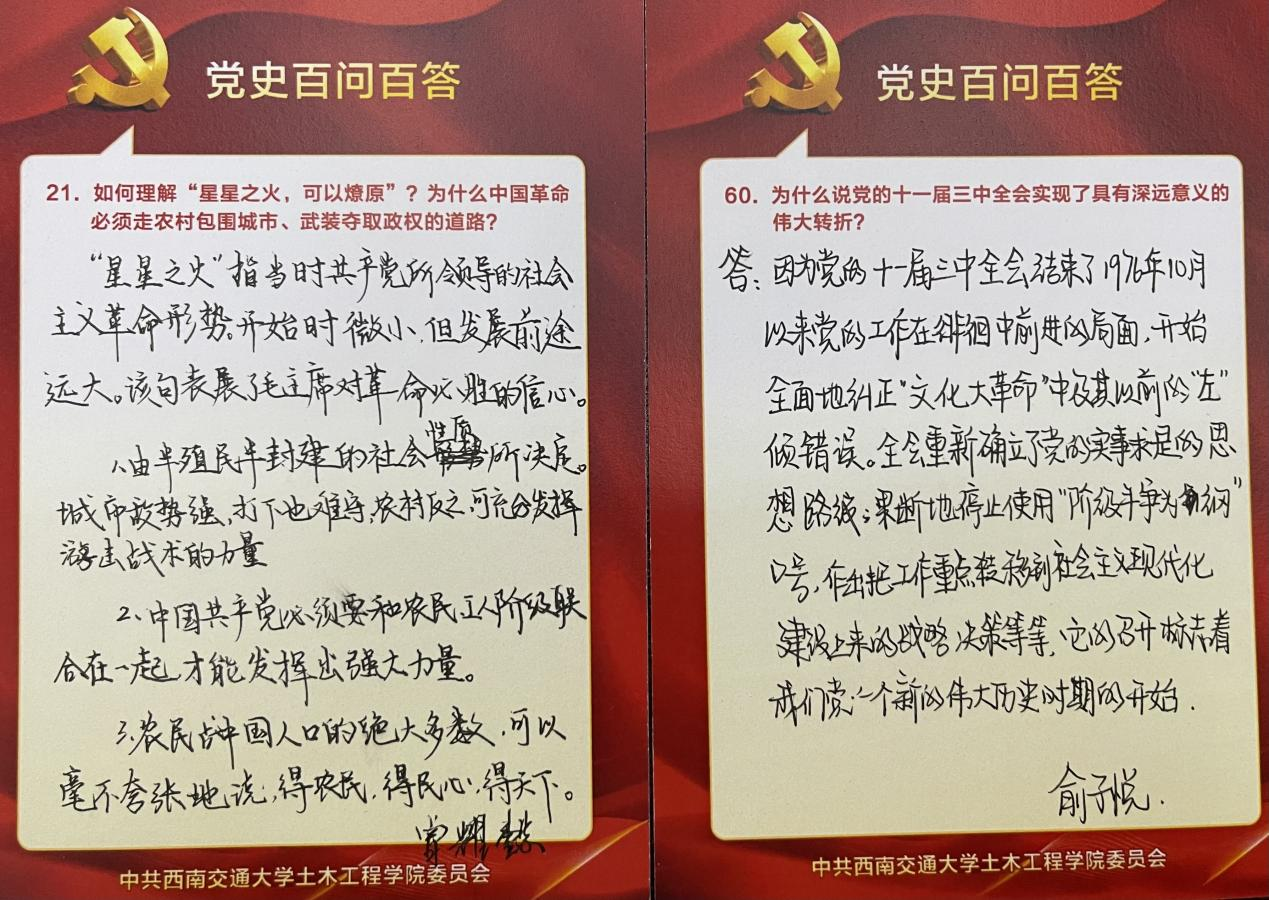 党史百问百答
21. 如何理解“星星之火，可以燎原”？为什么中国革命
必须走农村包围城市、武装夺取政权的道路？
“星星之火”指当时共产党所领导的社会
主义革命形势。开始时微小，但发展前途
远大。该句表展了毛主席对革命必胜的信心。
1、由半殖民半封建的社会性质所决定。
城市敌势强，打下也难守，农村反之，可充分发挥
游击战术的力量
2、中国共产党必须要和农民工人阶级联
合在一起，才能发挥出强大力量。
3、农民占中国人口的绝大多数，可以
毫不夸张地说，得农民，得民心，得天下。
中共西南交通大学土木工程学院委员会
党史百问百答
60. 为什么说党的十一届三中全会实现了具有深远意义的
伟大转折？
答：因为党的十一届三中全会结束了1976年10月
以来党的工作在徘徊中前进的局面，开始
全面地纠正“文化大革命”中及其以前的“左”
倾错误。全会重新确立了党的实事求是的思
想路线；果断地停止使用“阶级斗争为纲”
口号，作出把工作重点转移到社会主义现代化
建设上来的战略决策等等，它的召开标志着
我们党一个新的伟大历史时期的开始.
俞子悦.
中共西南交通大学土木工程学院委员会